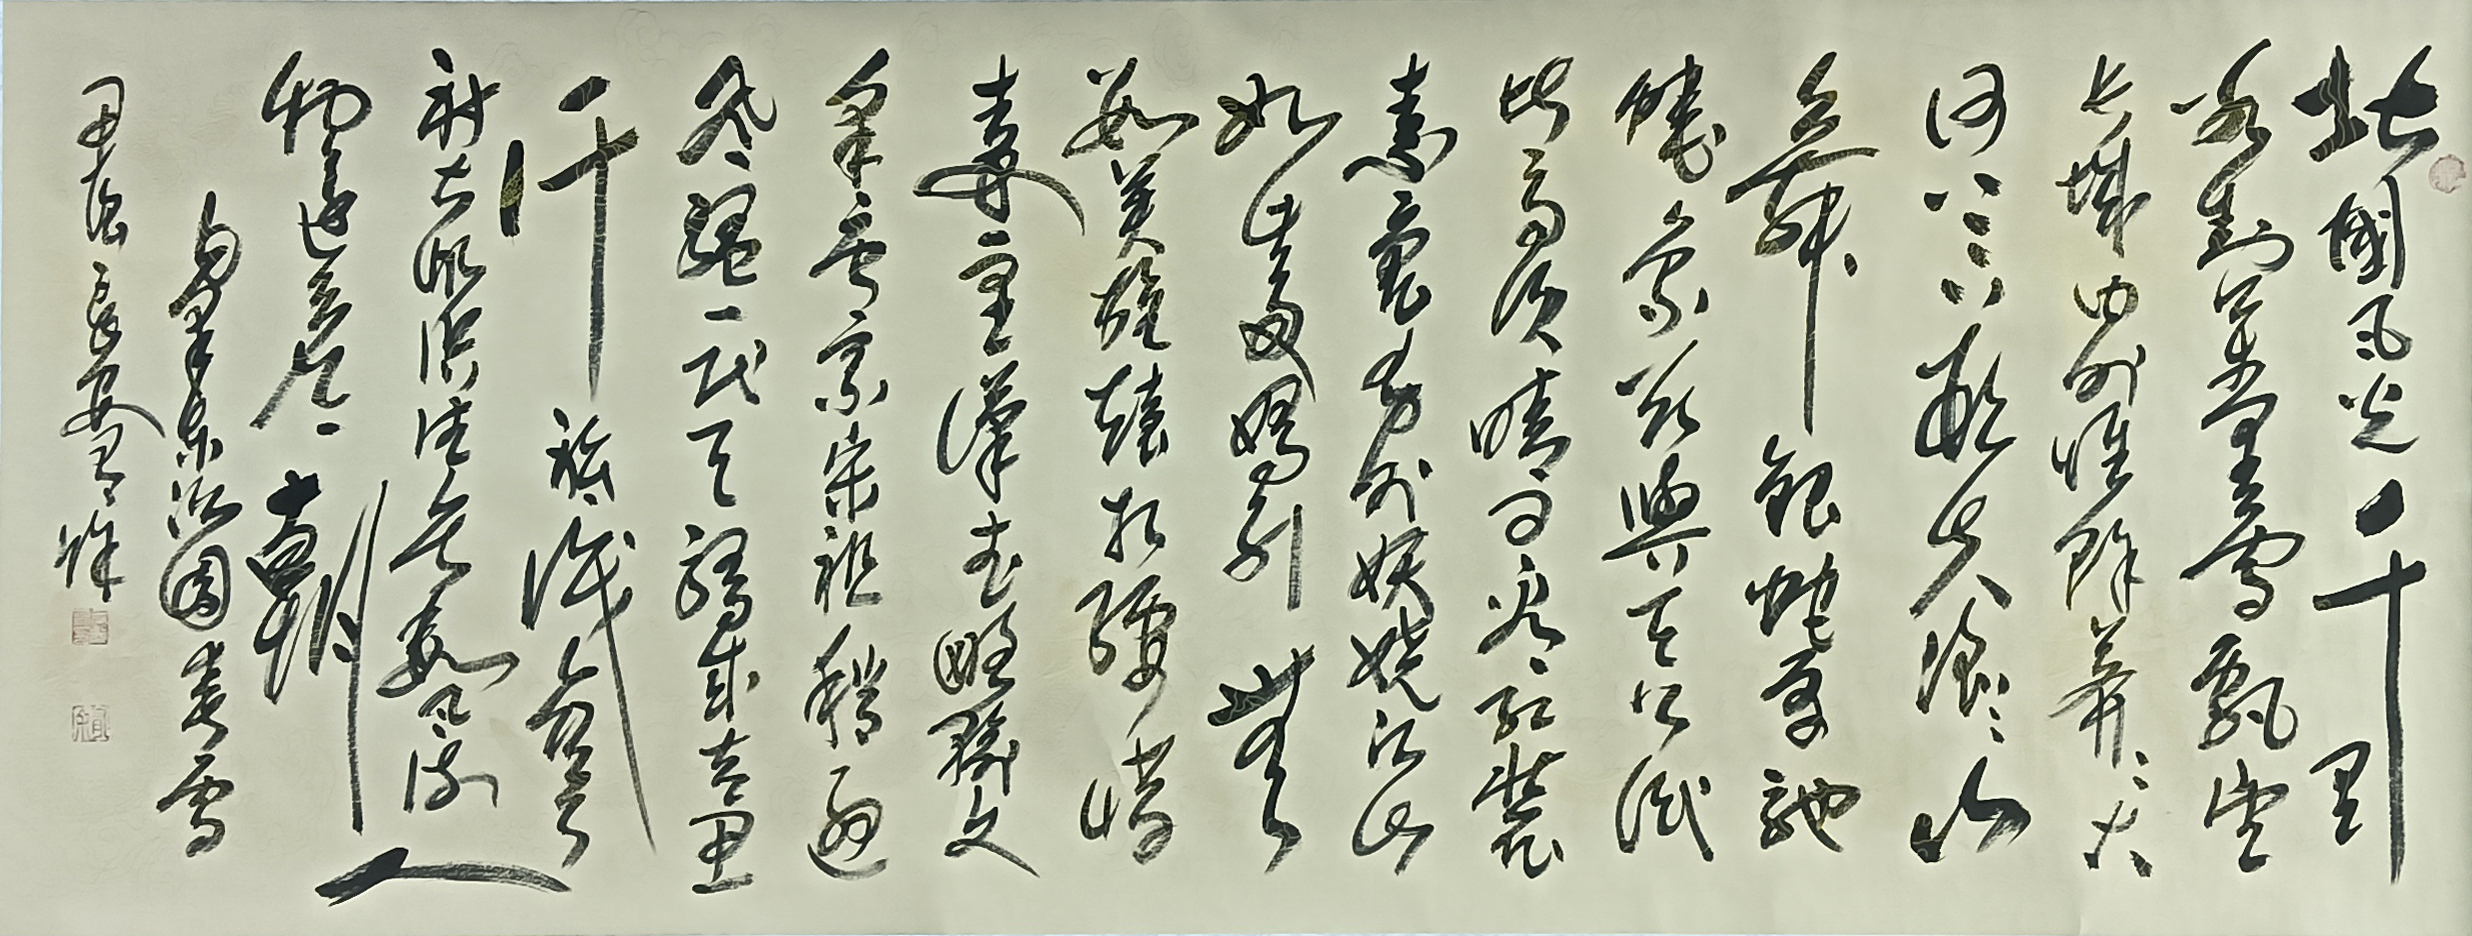 北國風光千里
冰封萬里雪飄望
長城內外惟餘莽莽大
河上下頓失滔滔山
舞銀蛇原馳
蠟象欲與天公試
比高須晴日看紅裝
素裹分外妖嬈江山
如此多嬌引無
數英雄競折腰惜
秦皇漢武略輸文
采唐宗宋祖稍遜
風騷一代天驕成吉思
汗祗識彎弓
射大雕俱往矣數風流人
物還看今朝
毛澤東沁園春雪
甲辰長安